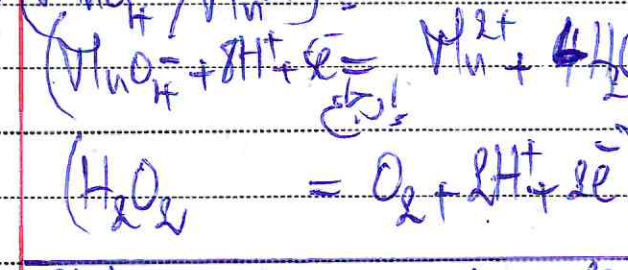 (MnO₄⁻ + 8H⁺ + 5e⁻ = Mn²⁺ + 4H₂
(H₂O₂ = O₂ + 2H⁺ + 2e⁻